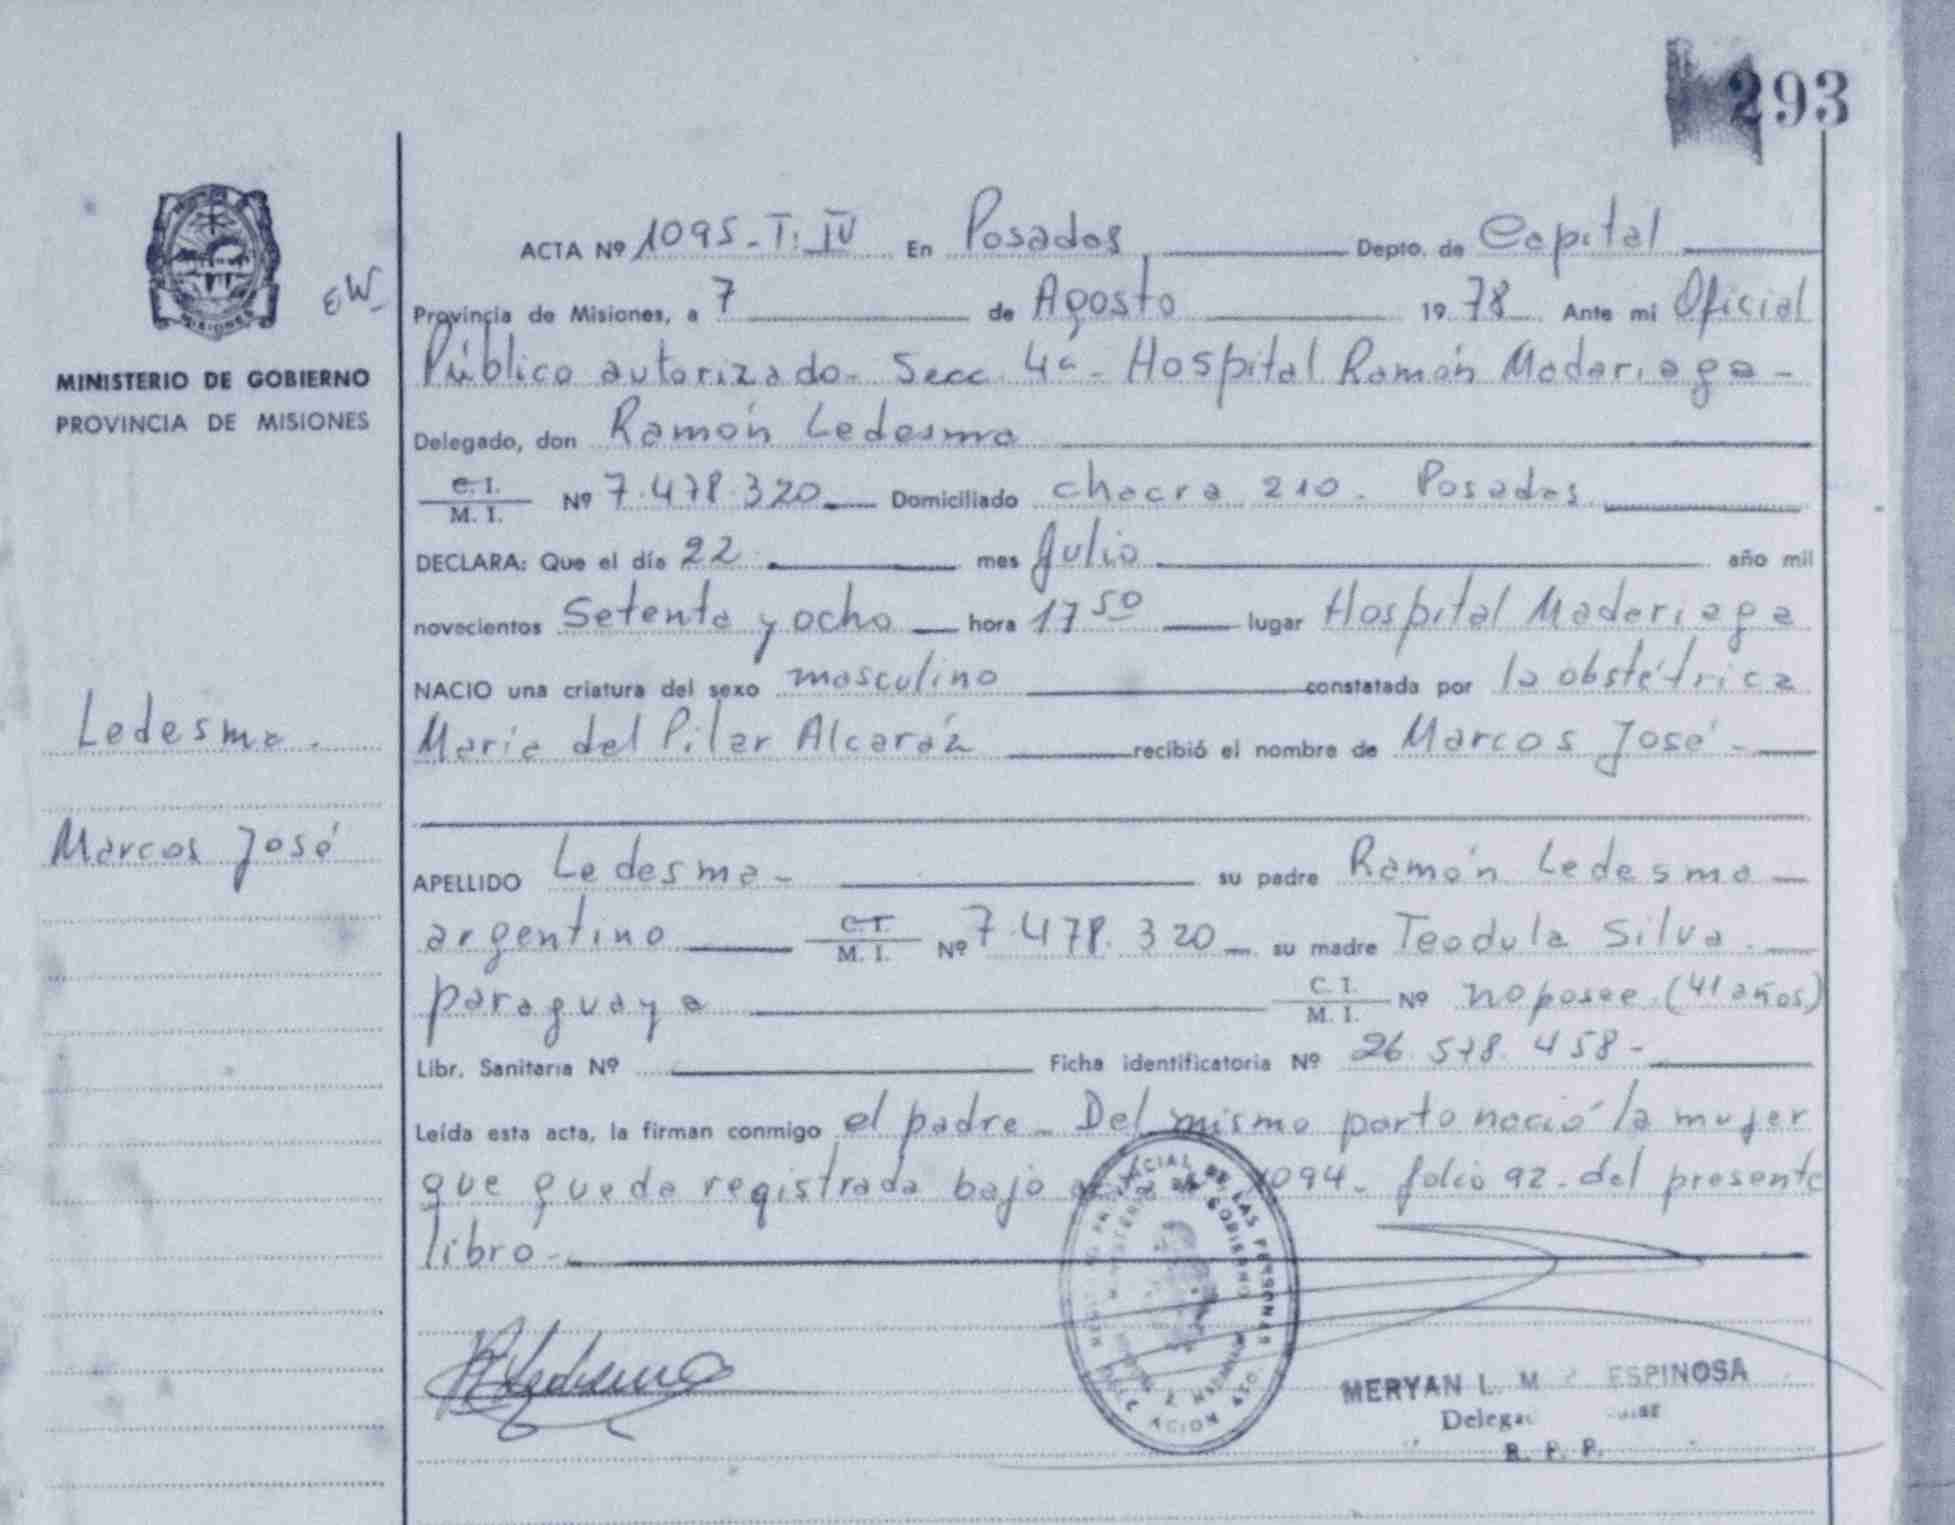 293
ACTA Nº 1095-T: IV En Posadas Depto. de Capital
EW
Provincia de Misiones, a 7 de Agosto 1978 Ante mi Oficial
MINISTERIO DE GOBIERNO
PROVINCIA DE MISIONES
Público autorizado. Secc. 4ª - Hospital Ramón Madariaga -
Delegado, don Ramón Ledesma
C. I. / M. I. Nº 7.478.320 Domiciliado chacra 210. Posadas
DECLARA: Que el día 22 mes Julio año mil
novecientos Setenta y ocho hora 17 50 lugar Hospital Madariaga
NACIO una criatura del sexo masculino constatada por la obstétrica
María del Pilar Alcaráz recibió el nombre de Marcos José -
Ledesma.
Marcos José
APELLIDO Ledesma - su padre Ramón Ledesma
argentino C. I. / M. I. Nº 7.478.320 su madre Teodula Silva.
paraguaya C. I. / M. I. Nº no posee (41 años)
Libr. Sanitaria Nº Ficha identificatoria Nº 26.578.458 -
Leída esta acta, la firman conmigo el padre - Del mismo parto nació la mujer
que queda registrada bajo 1094 - folio 92 - del presente
libro -
R Ledesma
MERYAN L. M ESPINOSA
R. P. P.